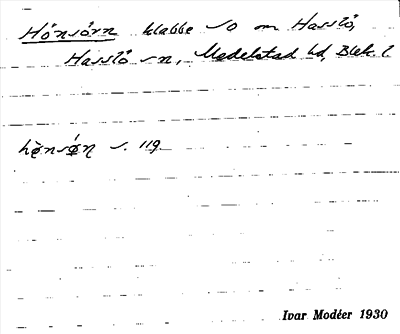 Hönsörn klabbe so om Hasslö,
Hasslö sn, Medelstad hd, Blek. l
s. 119
Ivar Modéer 1930